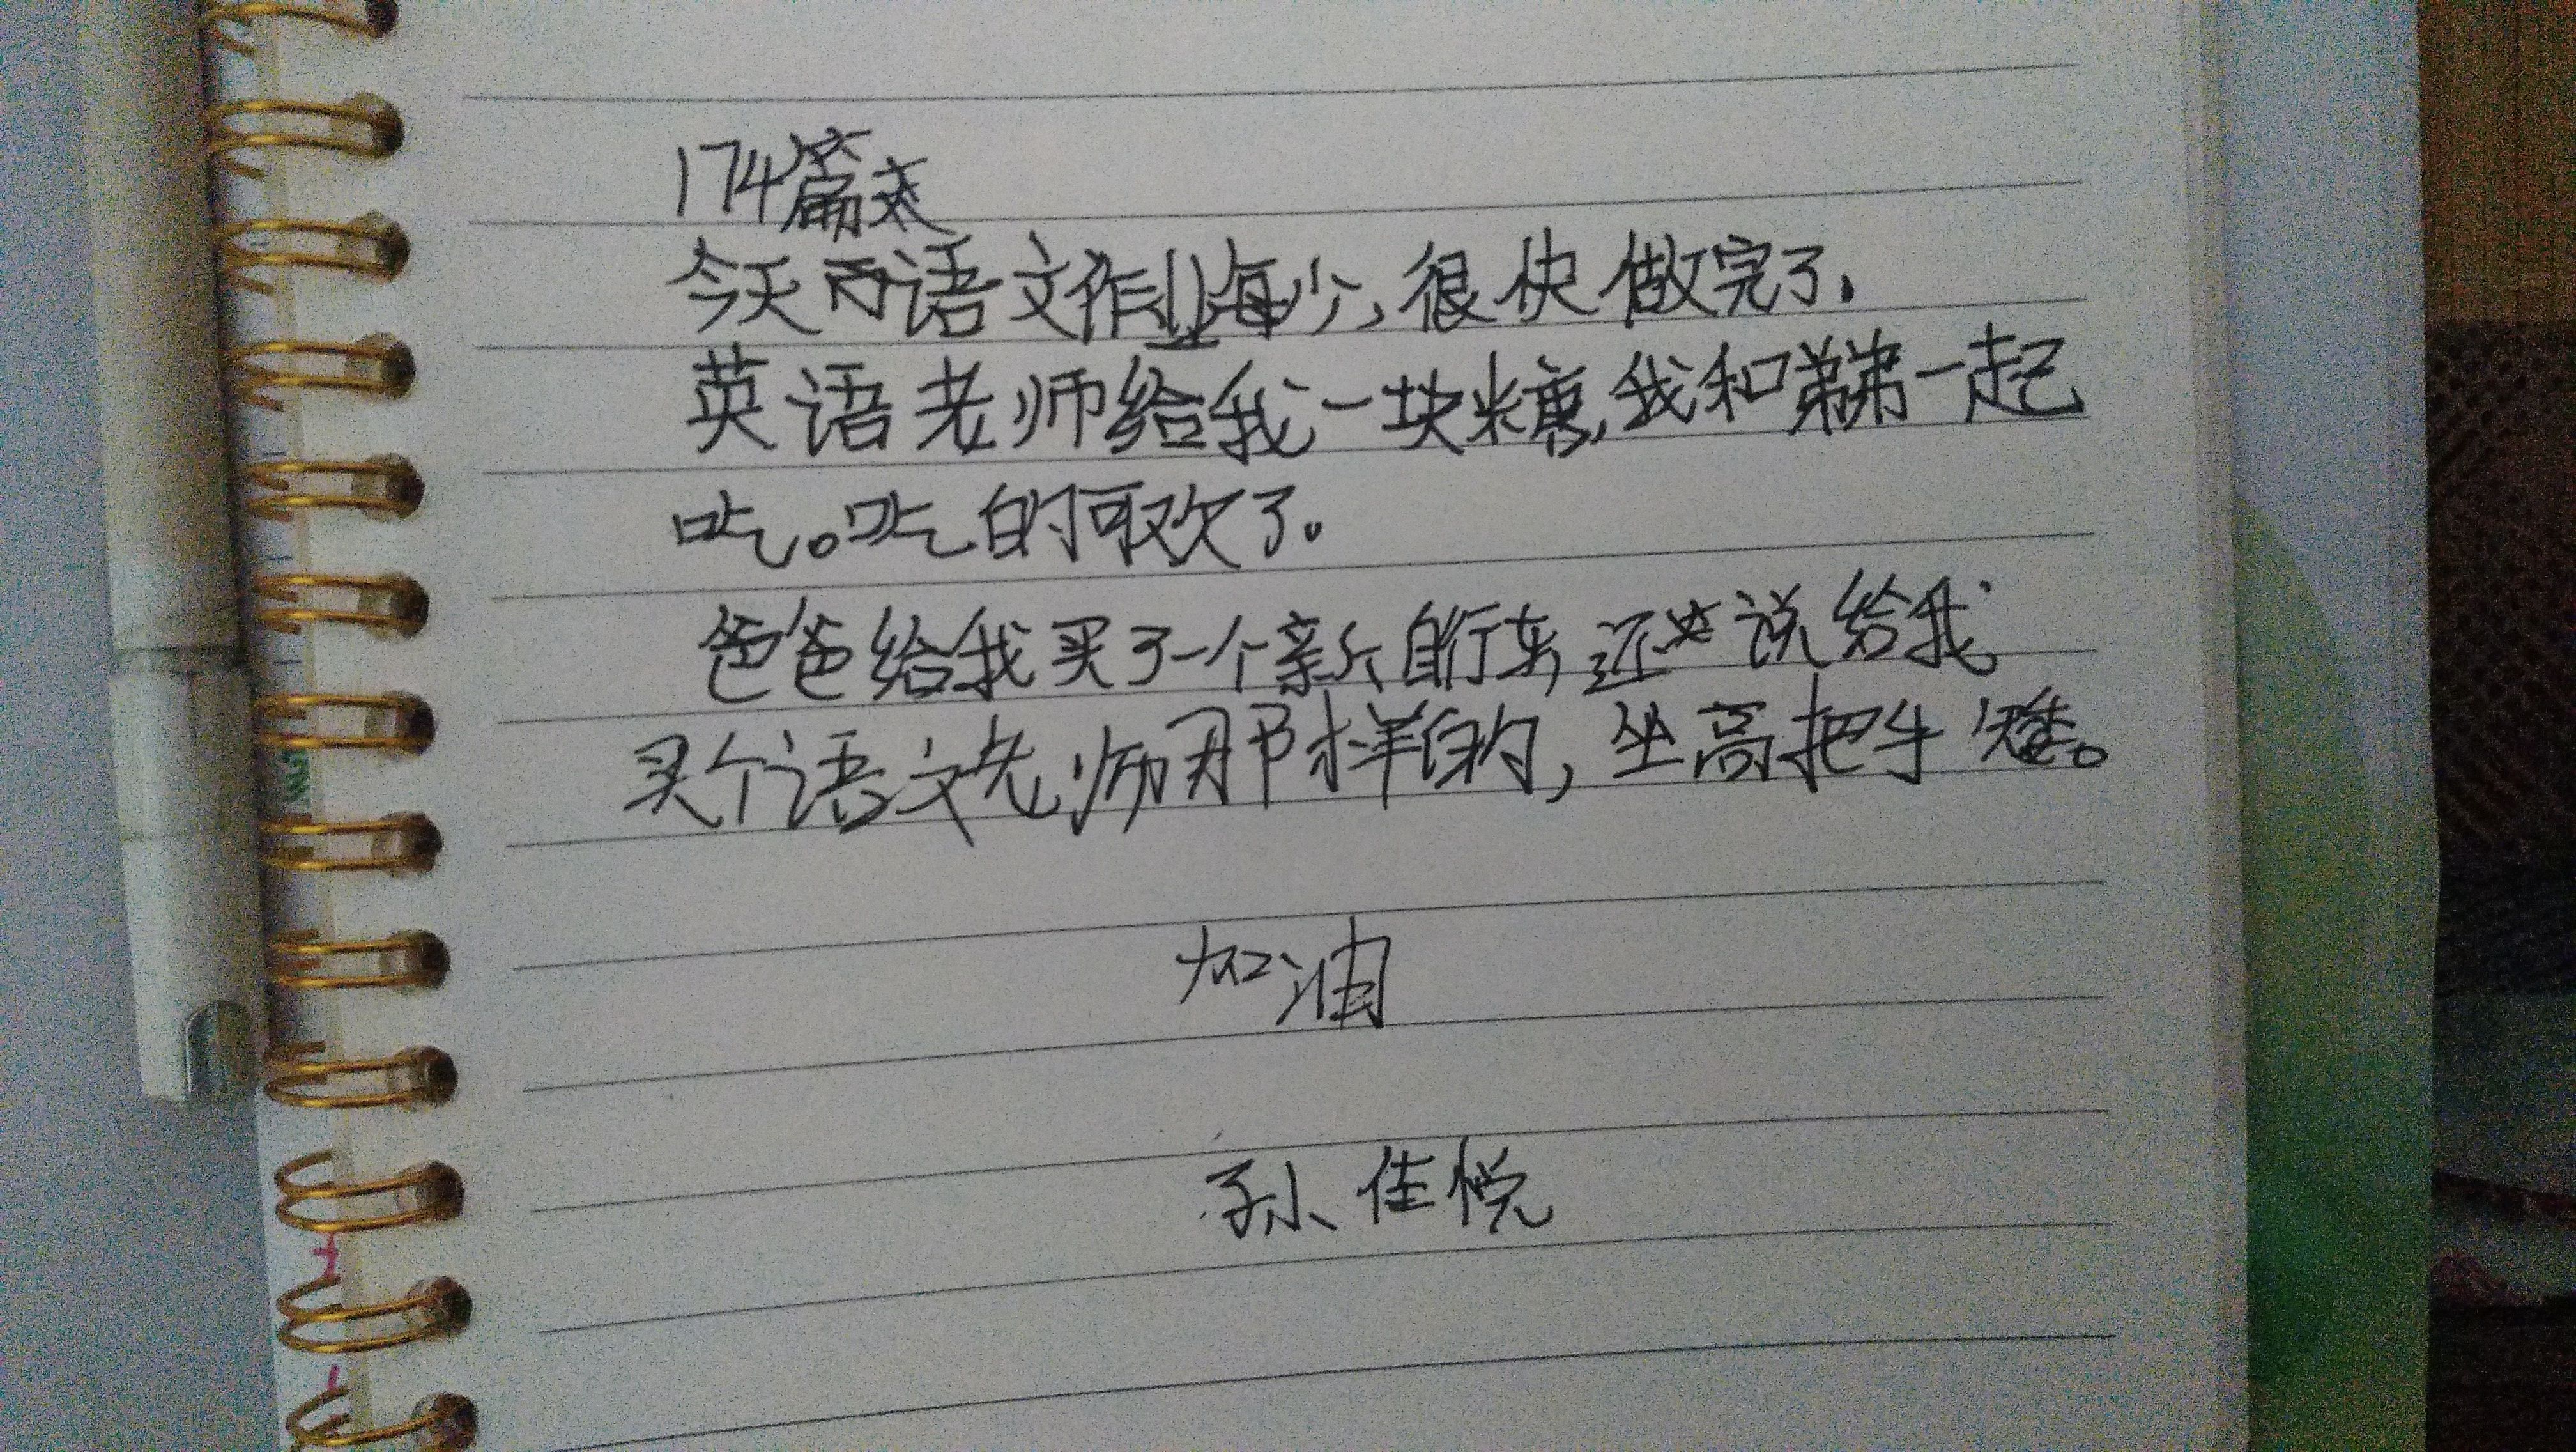 174篇
今天语文作业海少,很快做完了.
英语老师给我一块糖,我和弟弟一起
吃。吃的可欢了。
爸爸给我买了一个新自行车,还说给我
买个语文老师那样的,坐高把手矮。
加油
孙佳悦